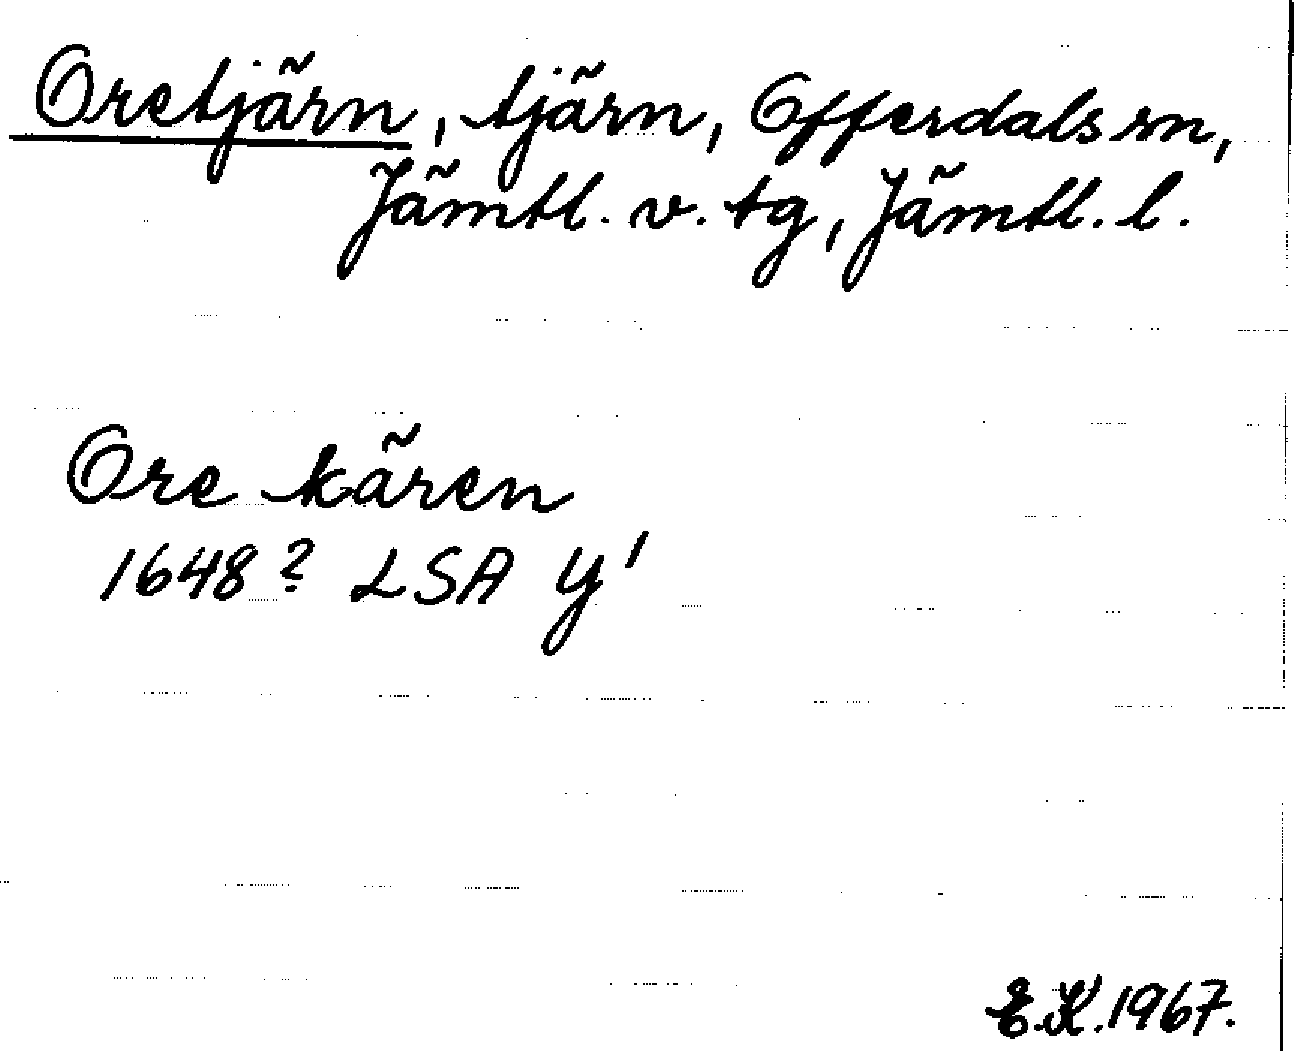 Oretjärn, tjärn, Offerdals sn,
Jämtl. v. tg, Jämtl. l.
Ore kären
1648? LSA Y¹
E.K. 1967.